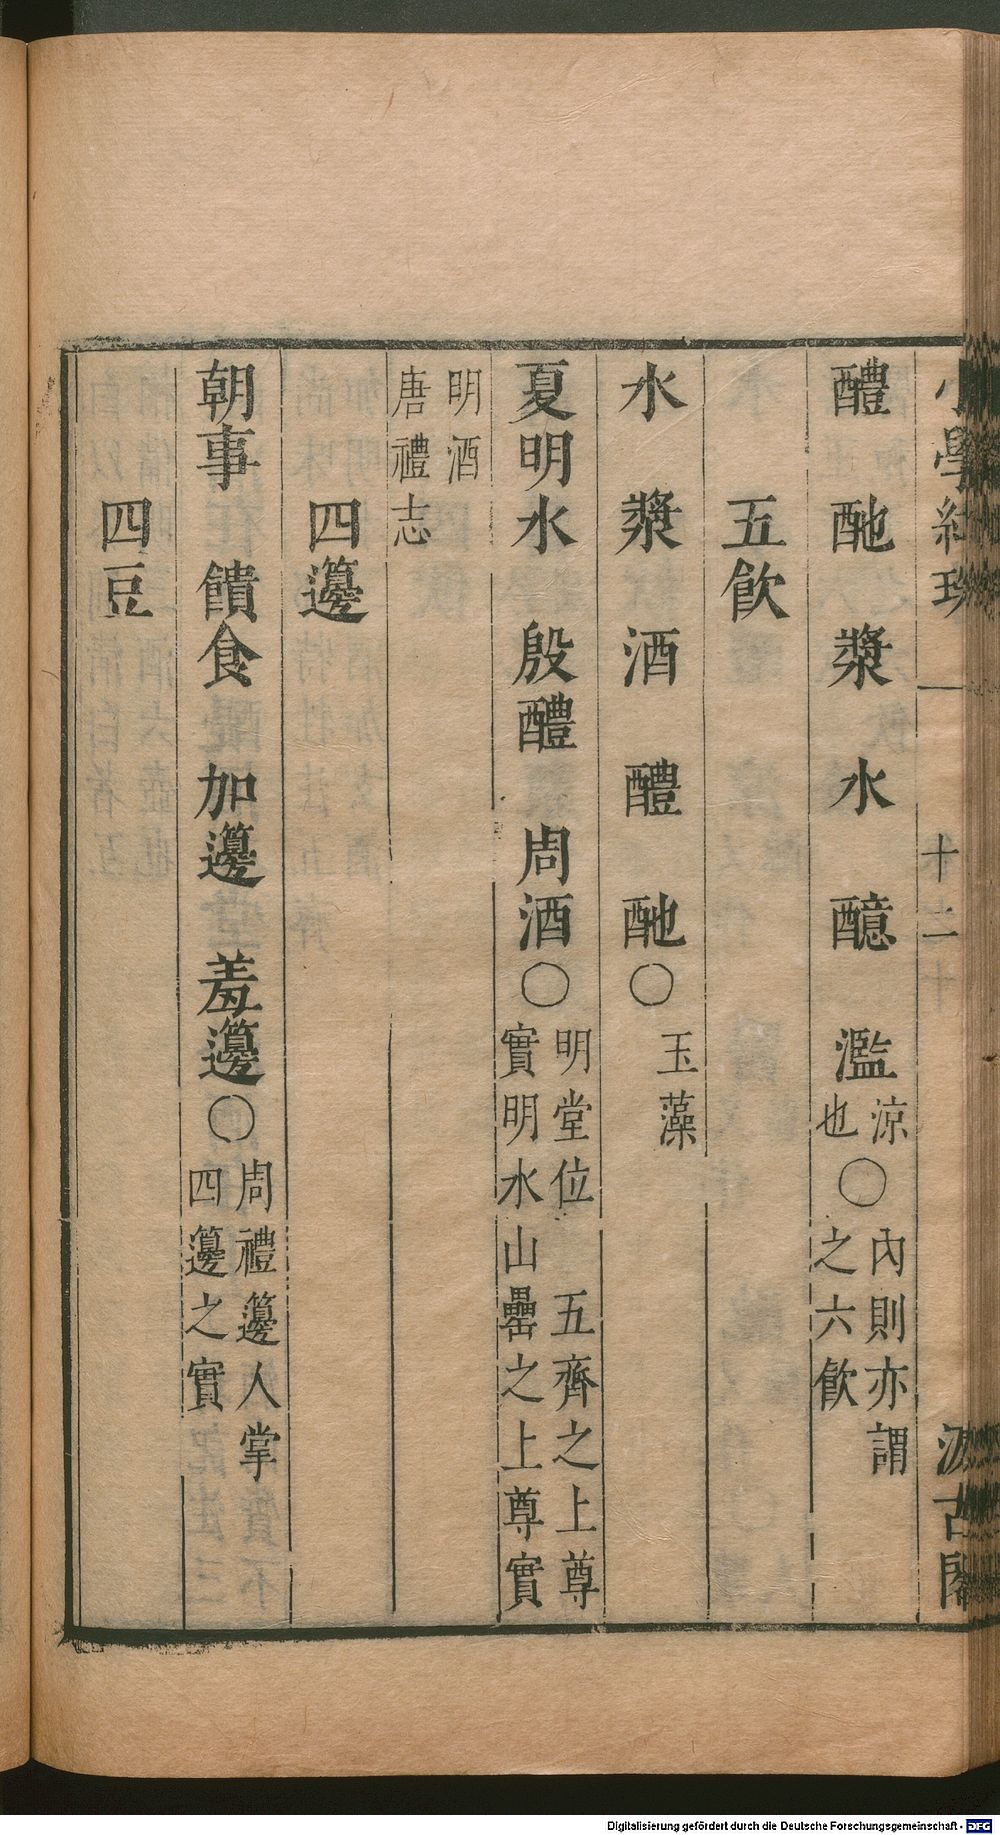 小學紺珠
十二
十
汲古閣
醴 酏 漿 水 醷 濫涼也○內則亦謂之六飲
五飲
水 漿 酒 醴 酏○玉藻
夏明水 殷醴 周酒○明堂位 五齊之上尊實明水山罍之上尊實
明酒唐禮志
四籩
朝事 饋食 加籩 羞籩○周禮籩人掌四籩之實
四豆
Digitalisierung gefördert durch die Deutsche Forschungsgemeinschaft - DFG